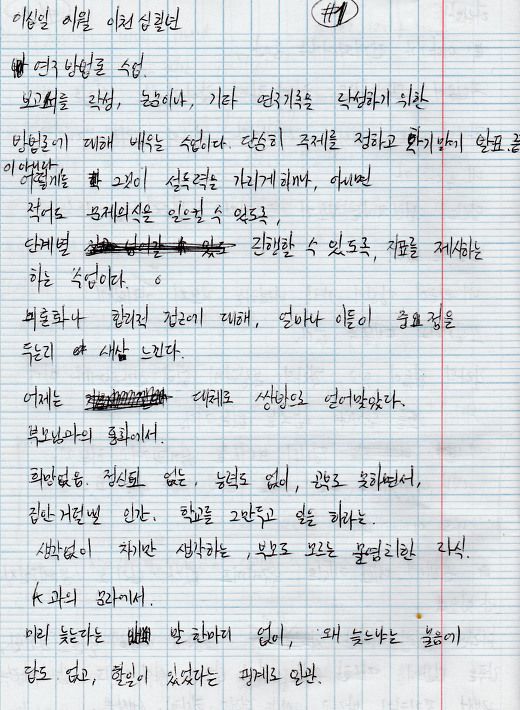 이십일 이월 이천 십칠년 #1
연구 방법론 수업.
보고서를 작성, 논문이나, 기타 연구기록을 작성하기 위한
방법론에 대해 배우는 수업이다. 단순히 주제를 정하고 학기말에 발표.끝
이 아니라
어떻게 그것이 설득력을 가리게하거나, 아니면
적어도 문제의식을 일으킬 수 있도록,
단계별 진행할 수 있도록, 지표를 제시하는
하는 수업이다.
이론화나 합리적 접근에 대해, 얼마나 이들이 중요 점을
두는지 새삼 느낀다.
어제는 대체로 쌍방으로 얻어맞았다.
부모님과의 통화에서.
희망없음. 정신도 없는, 능력도 없이, 공부도 못하면서,
집안 거덜낼 인간. 학교를 그만두고 일을 하라는.
생각없이 자기만 생각하는, 부모도 모르는 몰염치한 자식.
K과의 문자에서.
미리 늦는다는 말 한마디 없이, 왜 늦느냐는 물음에
답도 없고, 할일이 있었다는 핑계로 일관.